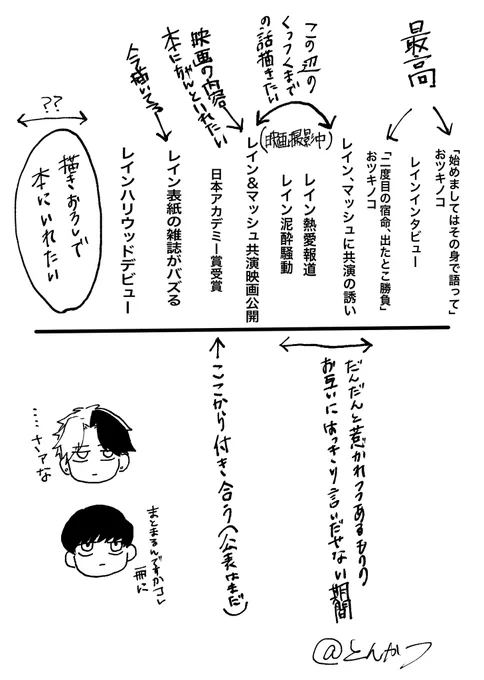 最高
「始めましてはその身で語って」
おツキノコ
レインインタビュー
「二度目の宿命、出たとこ勝負」
おツキノコ
レイン、マッシュに共演の誘い
この辺の
くっつくまで
の話描きたい
(映画撮影中)
レイン熱愛報道
レイン泥酔騒動
レイン&マッシュ共演映画公開
映画の内容
本にちゃんといれたい
日本アカデミー賞受賞
レイン表紙の雑誌がバズる
今描いてる
レインハリウッドデビュー
??
描きおろしで
本にいれたい
だんだんと惹かれつつあるものの
お互いにはっきり言いだせない期間
ここから付き合う(公表はまだ)
……さあな
まとまるんですかコレ
一冊に
@とんかつ